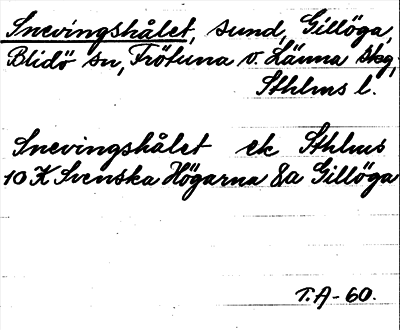 Snevingshålet, sund, Gillöga,
Blidö sn, Frötuna o. Länna skg,
Sthlms l.
Snevingshålet ek Sthlms
10 K Svenska Högarna 8a Gillöga
T.A-60.